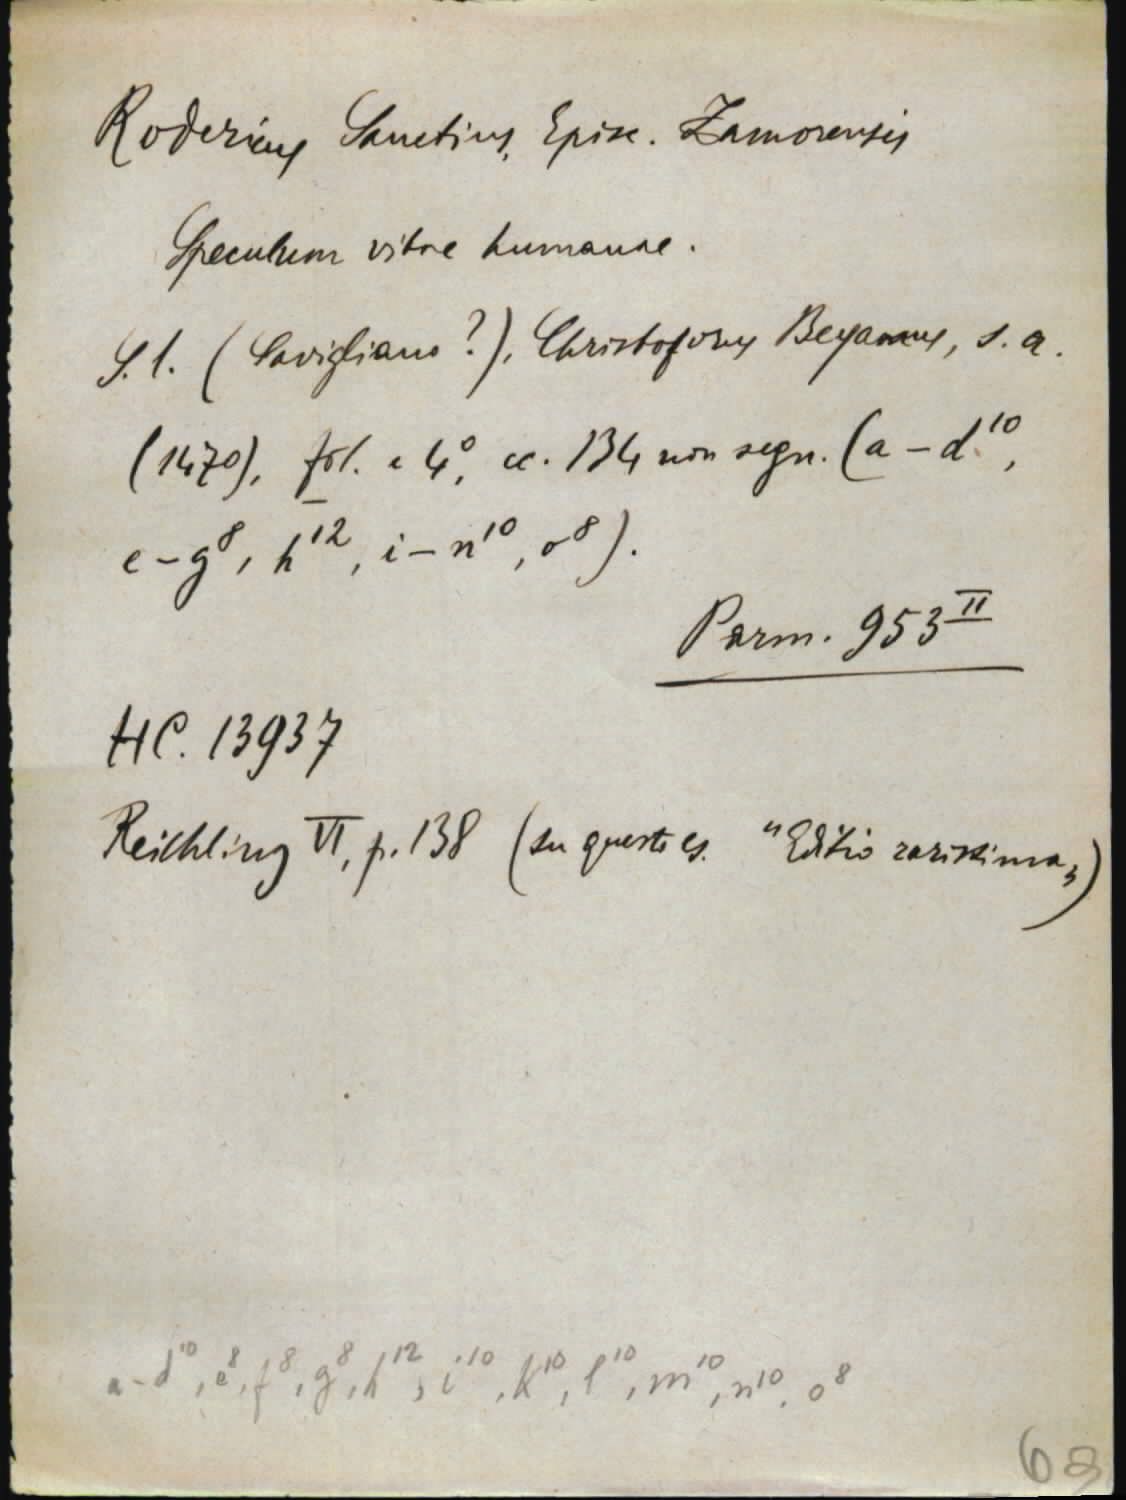 Rodericus Sanctius, Episc. Zamorensis
Speculum vitae humanae.
S. l. (Savigliano?), Christoforus Beyamus, s. a.
(1470), fol. e 4°, cc. 134 non segn. (a–d¹⁰,
e–g⁸, h¹², i–n¹⁰, o⁸).
Parm. 953ᴵᴵ
HC. 13937
Reichling VI, p. 138 (su questo es. "Editio rarissima„)
a–d¹⁰, e⁸, f⁸, g⁸, h¹², i¹⁰, k¹⁰, l¹⁰, m¹⁰, n¹⁰, o⁸